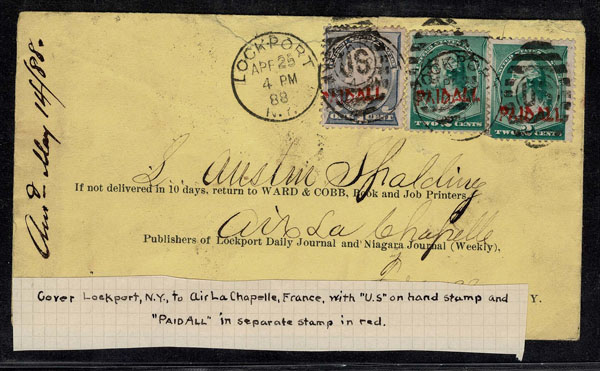 Ans'd May 14/88.
LOCKPORT
APR 25
4 PM
88
N.Y.
US
PAID ALL
PAID ALL
PAID ALL
TWO CENTS
TWO CENTS
L. Austin Spalding
If not delivered in 10 days, return to WARD & COBB, Book and Job Printers,
Aix La Chapelle
Publishers of Lockport Daily Journal and Niagara Journal (Weekly),
Y.
Cover Lockport, N.Y., to Air La Chapelle, France, with "U.S" on hand stamp and
"PAID ALL" in separate stamp in red.